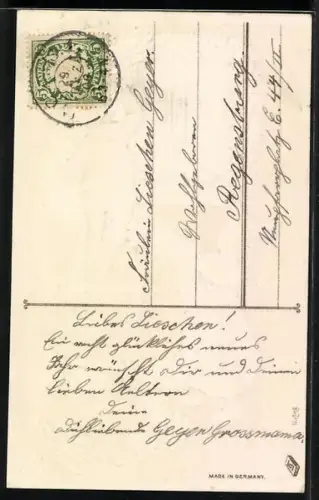 Fräulein Lieschen Geyer
Wohlgeboren
Regensburg
E. 44/II
Liebes Lieschen!
Ein recht glückliches neues
Jahr wünscht Dir und Deinen
lieben Aeltern
Deine
Dich liebende Geyer Grossmama.
MADE IN GERMANY.